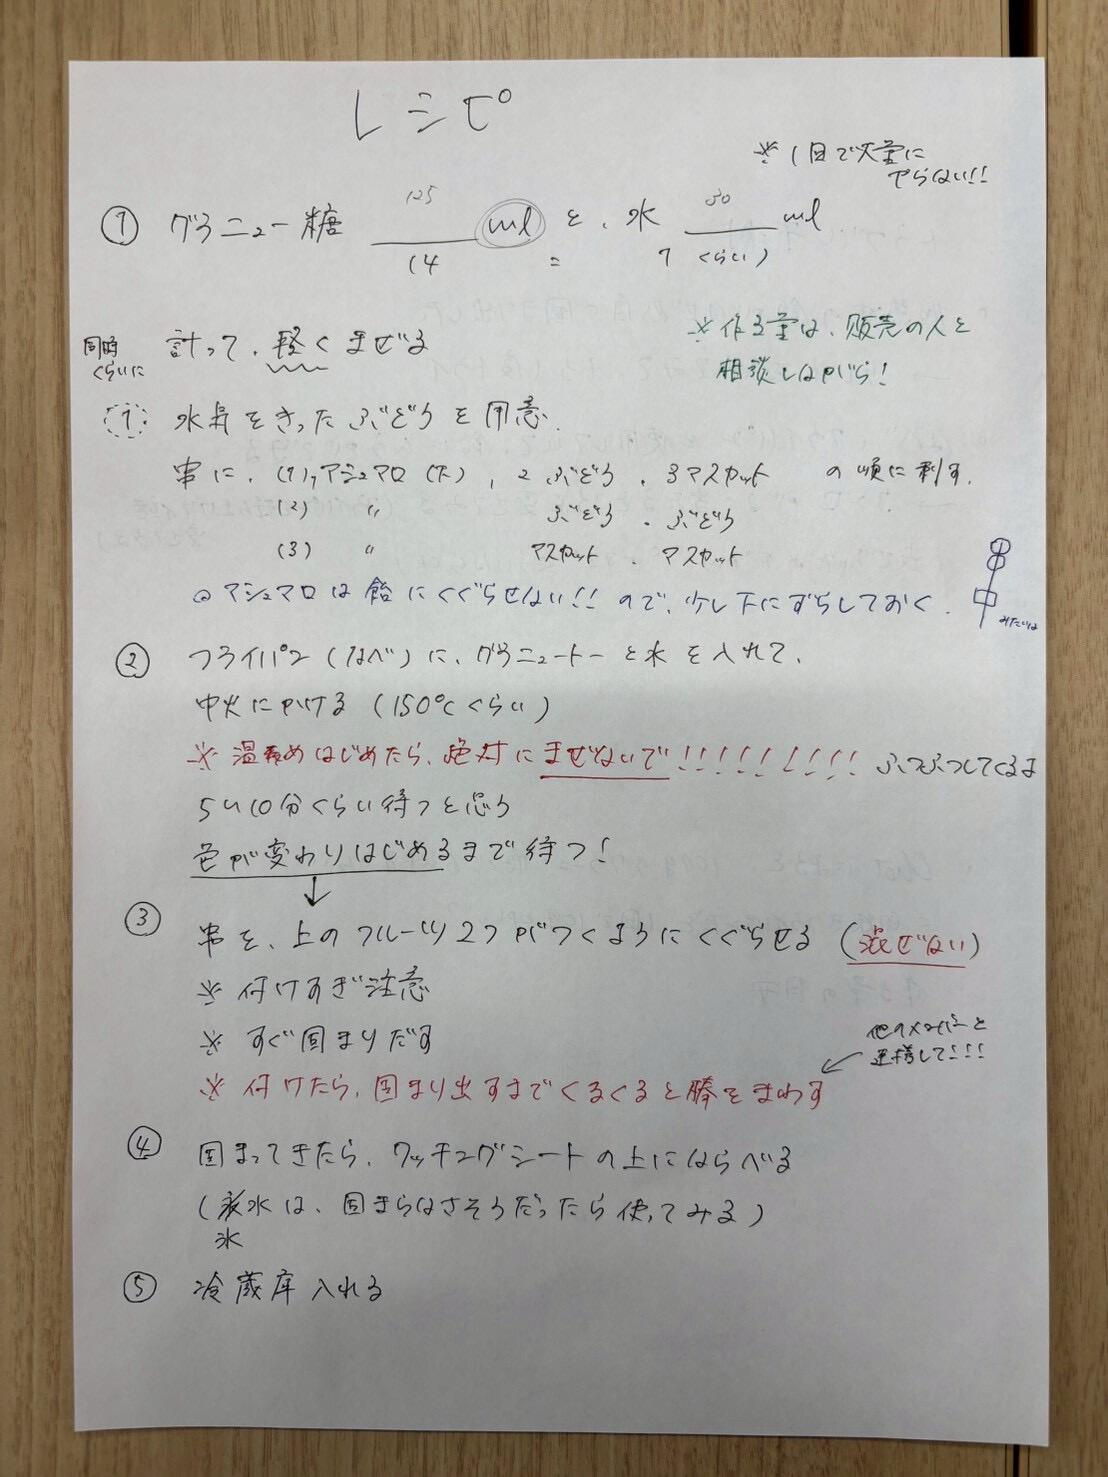 レシピ
※1回で大量に
やらない!!
① グラニュー糖 125 ml と、水 50 ml
(4 = 1 くらい)
※作る量は、販売の人と
相談しながら!
同時
くらいに
計って、軽くまぜる
① 水気をきったぶどうを用意.
串に、(1)マシュマロ(下)、2ぶどう、3マスカット の順に刺す.
(2) 〃 ぶどう・ぶどう
(3) 〃 マスカット、マスカット
◎マシュマロは飴にくぐらせない!!ので、少し下にずらしておく.
みたいな
② フライパン(なべ)に、グラニュートーと水を入れて、
中火にかける(150℃くらい)
※温めはじめたら、絶対にまぜないで!!!!!!!!! ふつふつしてくるよ
5〜10分くらい待つと思う
色が変わりはじめるまで待つ!
↓
③ 串を、上のフルーツ2つがつくようにくぐらせる(混ぜない)
※付けすぎ注意
※すぐ固まりだす
他のメンバーと
連携して!!!
※付けたら、固まり出すまでくるくると棒をまわす
④ 固まってきたら、クッキングシートの上にならべる
(氷水は、固まらなさそうだったら使ってみる)
氷
⑤ 冷蔵庫入れる